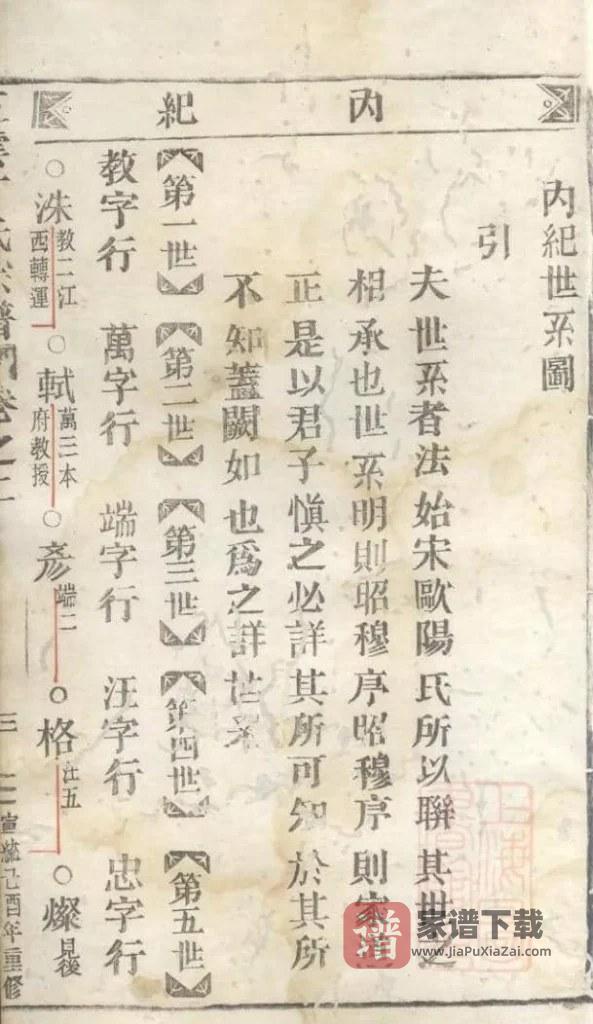 內紀
內紀世系圖
引
夫世系者法始宋歐陽氏所以聯其世之
相承也世系明則昭穆序昭穆序則家道
正是以君子慎之必詳其所可知於其所
不知蓋闕如也爲之詳世系
第一世 第二世 第三世 第四世 第五世
教字行 萬字行 端字行 汪字行 忠字行
洙 教二江西轉運
軾 萬三本府教授
彥 端二
格 汪五
燦 見後
氏宗譜 卷之二
三
宣統己酉年重修
家谱下载
www.JiaPuXiaZai.com
谱